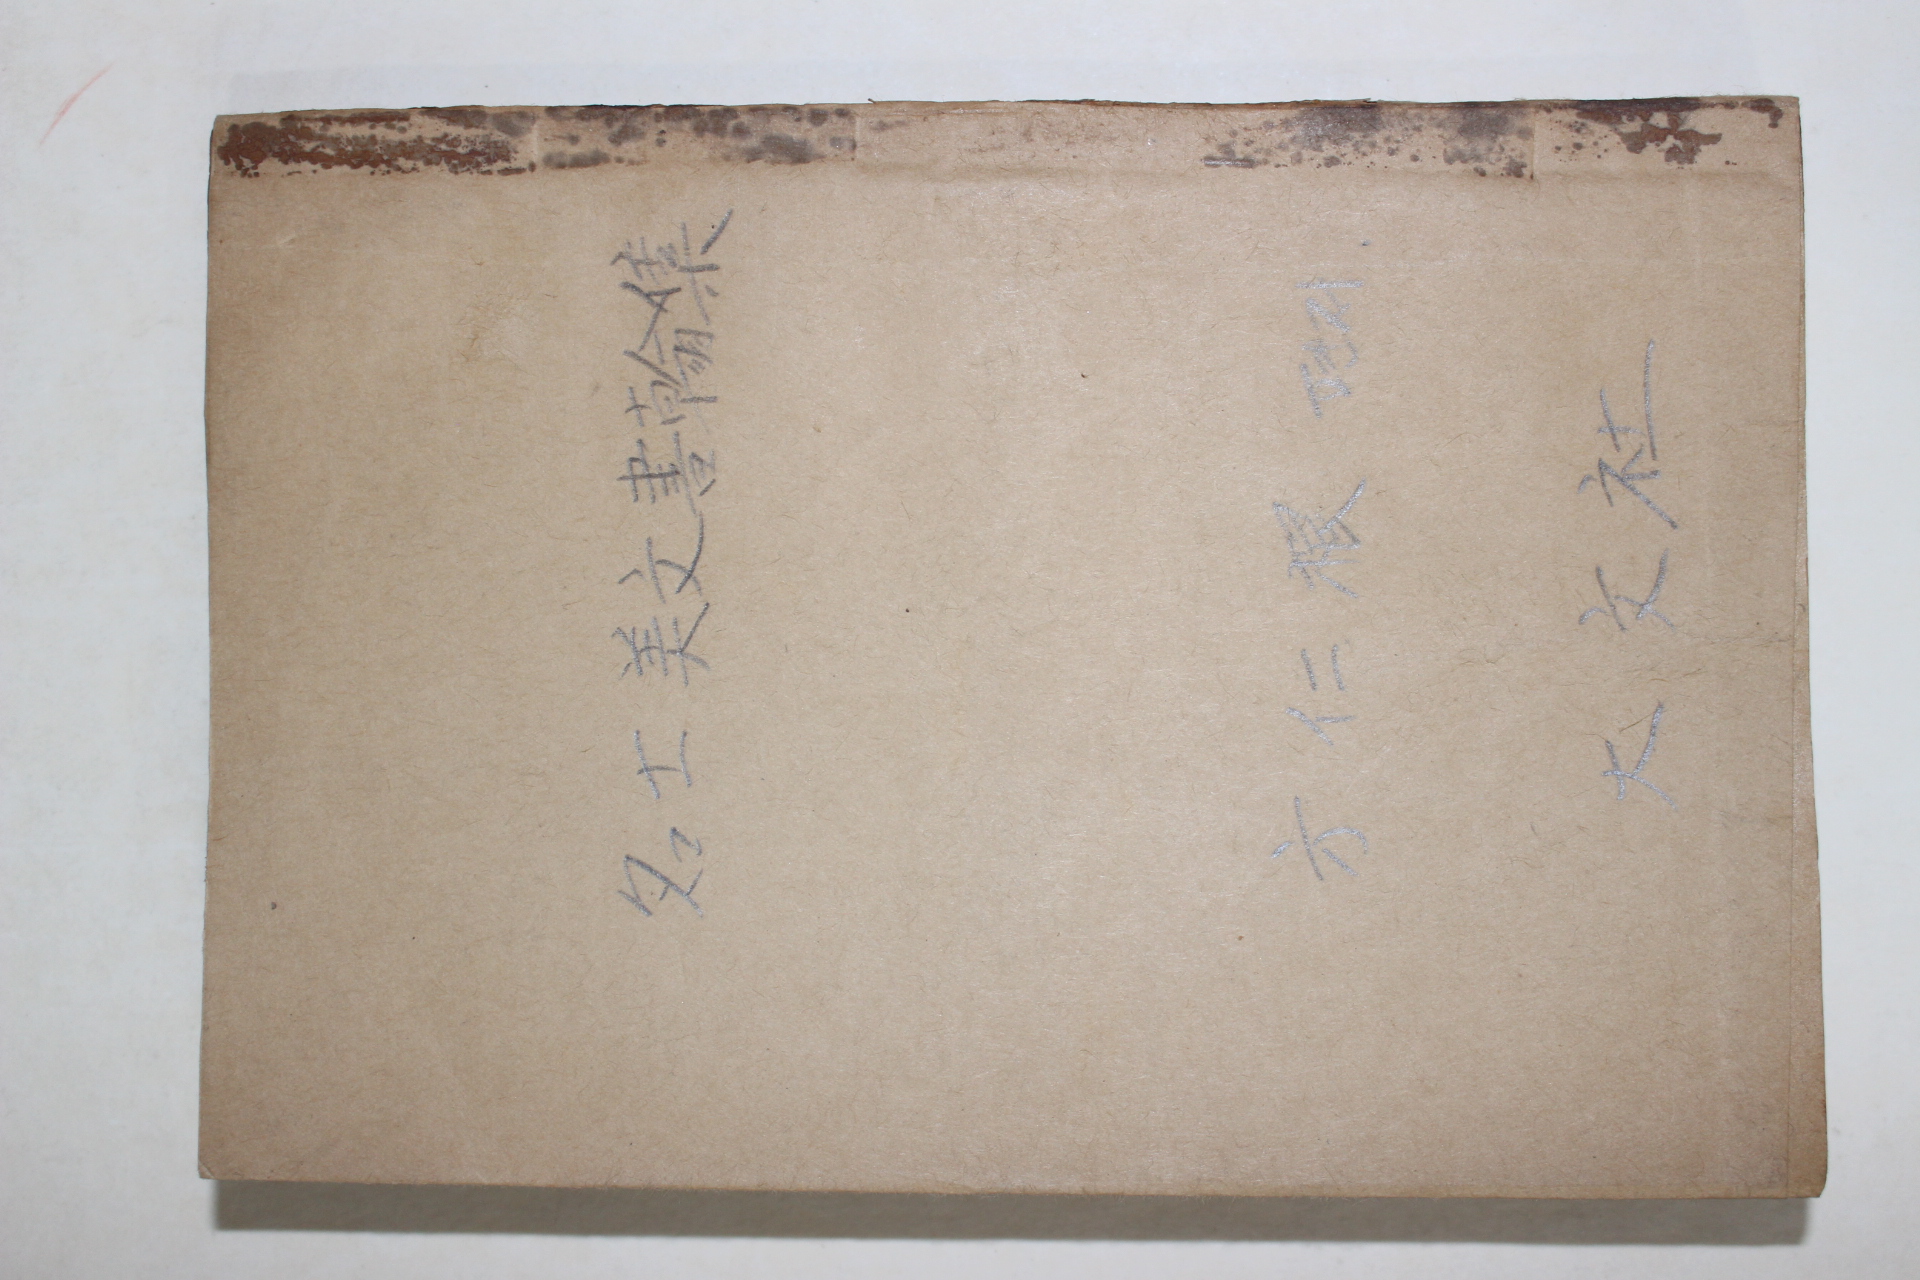 名士美文書翰集
方仁根 편자
大文社